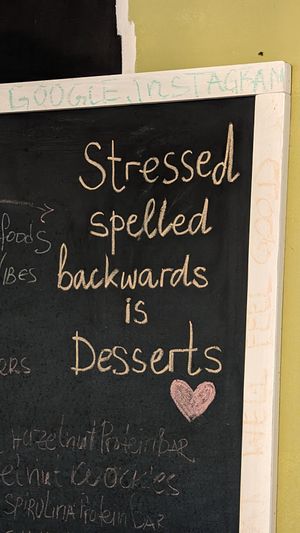 GOOGLE, INSTAGRAM
Stressed
spelled
backwards
is
Desserts
FOODS
VIBES
ERS
Hazelnut Protein BAR
elnut COOKIES
SPIRULINA Protein BAR
FEEL GOOD